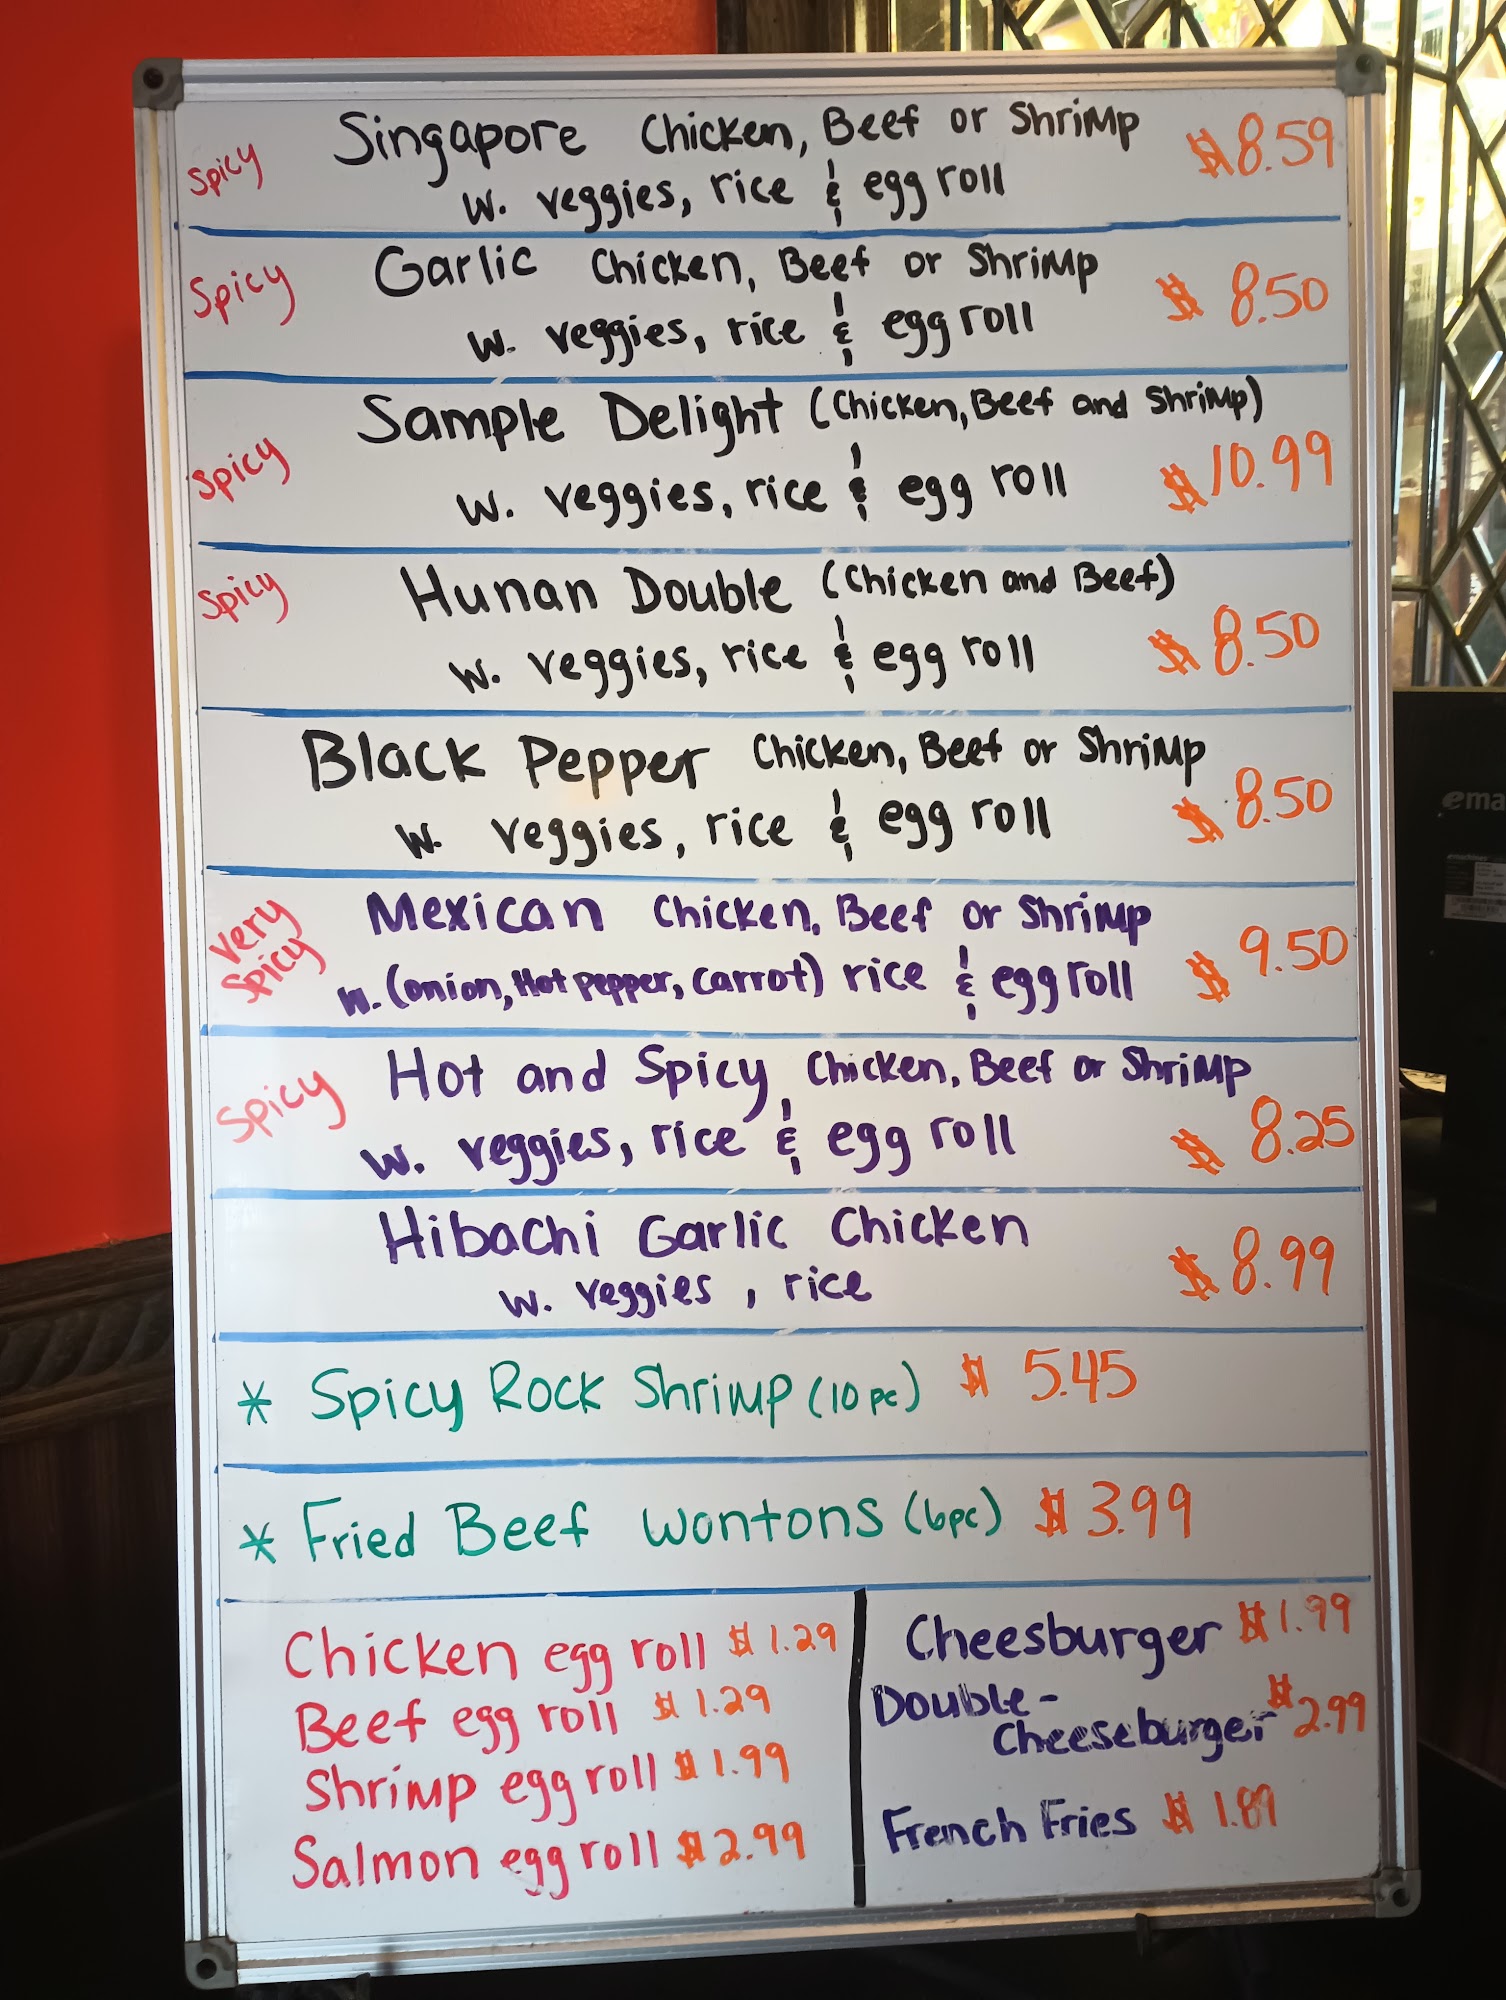 Spicy Singapore Chicken, Beef or Shrimp $8.59
w. veggies, rice & egg roll
Spicy Garlic Chicken, Beef or Shrimp $8.50
w. veggies, rice & egg roll
Sample Delight (Chicken, Beef and Shrimp)
Spicy w. veggies, rice & egg roll $10.99
Spicy Hunan Double (Chicken and Beef)
w. veggies, rice & egg roll $8.50
Black Pepper Chicken, Beef or Shrimp
w. veggies, rice & egg roll $8.50
Very Mexican Chicken, Beef or Shrimp
Spicy w. (onion, Hot pepper, carrot) rice & egg roll $9.50
Spicy Hot and Spicy Chicken, Beef or Shrimp
w. veggies, rice & egg roll $8.25
Hibachi Garlic Chicken
w. veggies, rice $8.99
* Spicy Rock Shrimp (10 pc) $5.45
* Fried Beef wontons (6pc) $3.99
Chicken egg roll $1.29
Beef egg roll $1.29
Shrimp egg roll $1.99
Salmon egg roll $2.99
Cheesburger $1.99
Double-
Cheeseburger $2.99
French Fries $1.89
ema